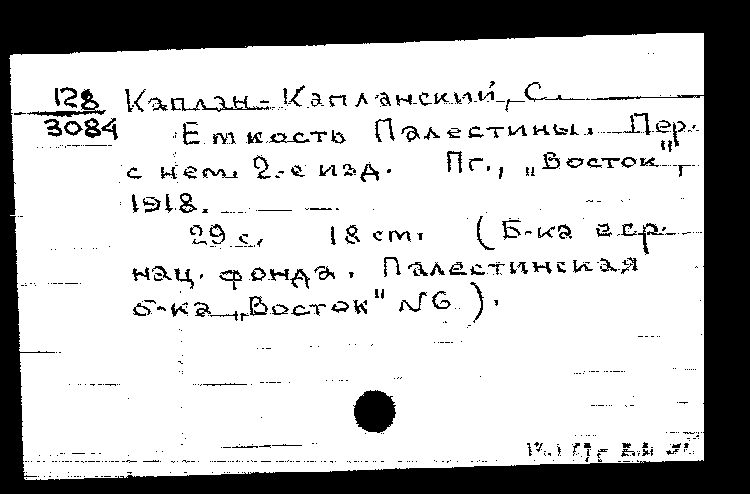 128 Каплан-Капланский, С.
3084 Емкость Палестины. Пер.
с нем. 2-е изд. Пг., „Восток",
1918.
29 с. 18 см. (Б-ка евр.
нац. фонда. Палестинская
б-ка „Восток" №6).